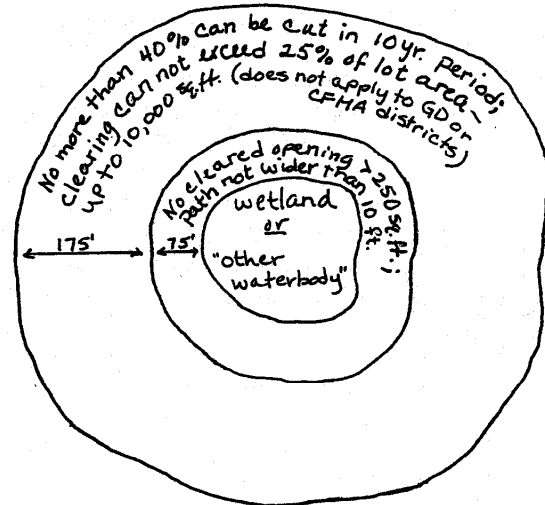 No more than 40% can be cut in 10yr. period;
clearing can not exceed 25% of lot area -
up to 10,000 sq.ft. (does not apply to GD or
CFMA districts)
No cleared opening > 250 sq.ft.;
path not wider than 10 ft.
wetland
or
"other
waterbody"
175'
75'